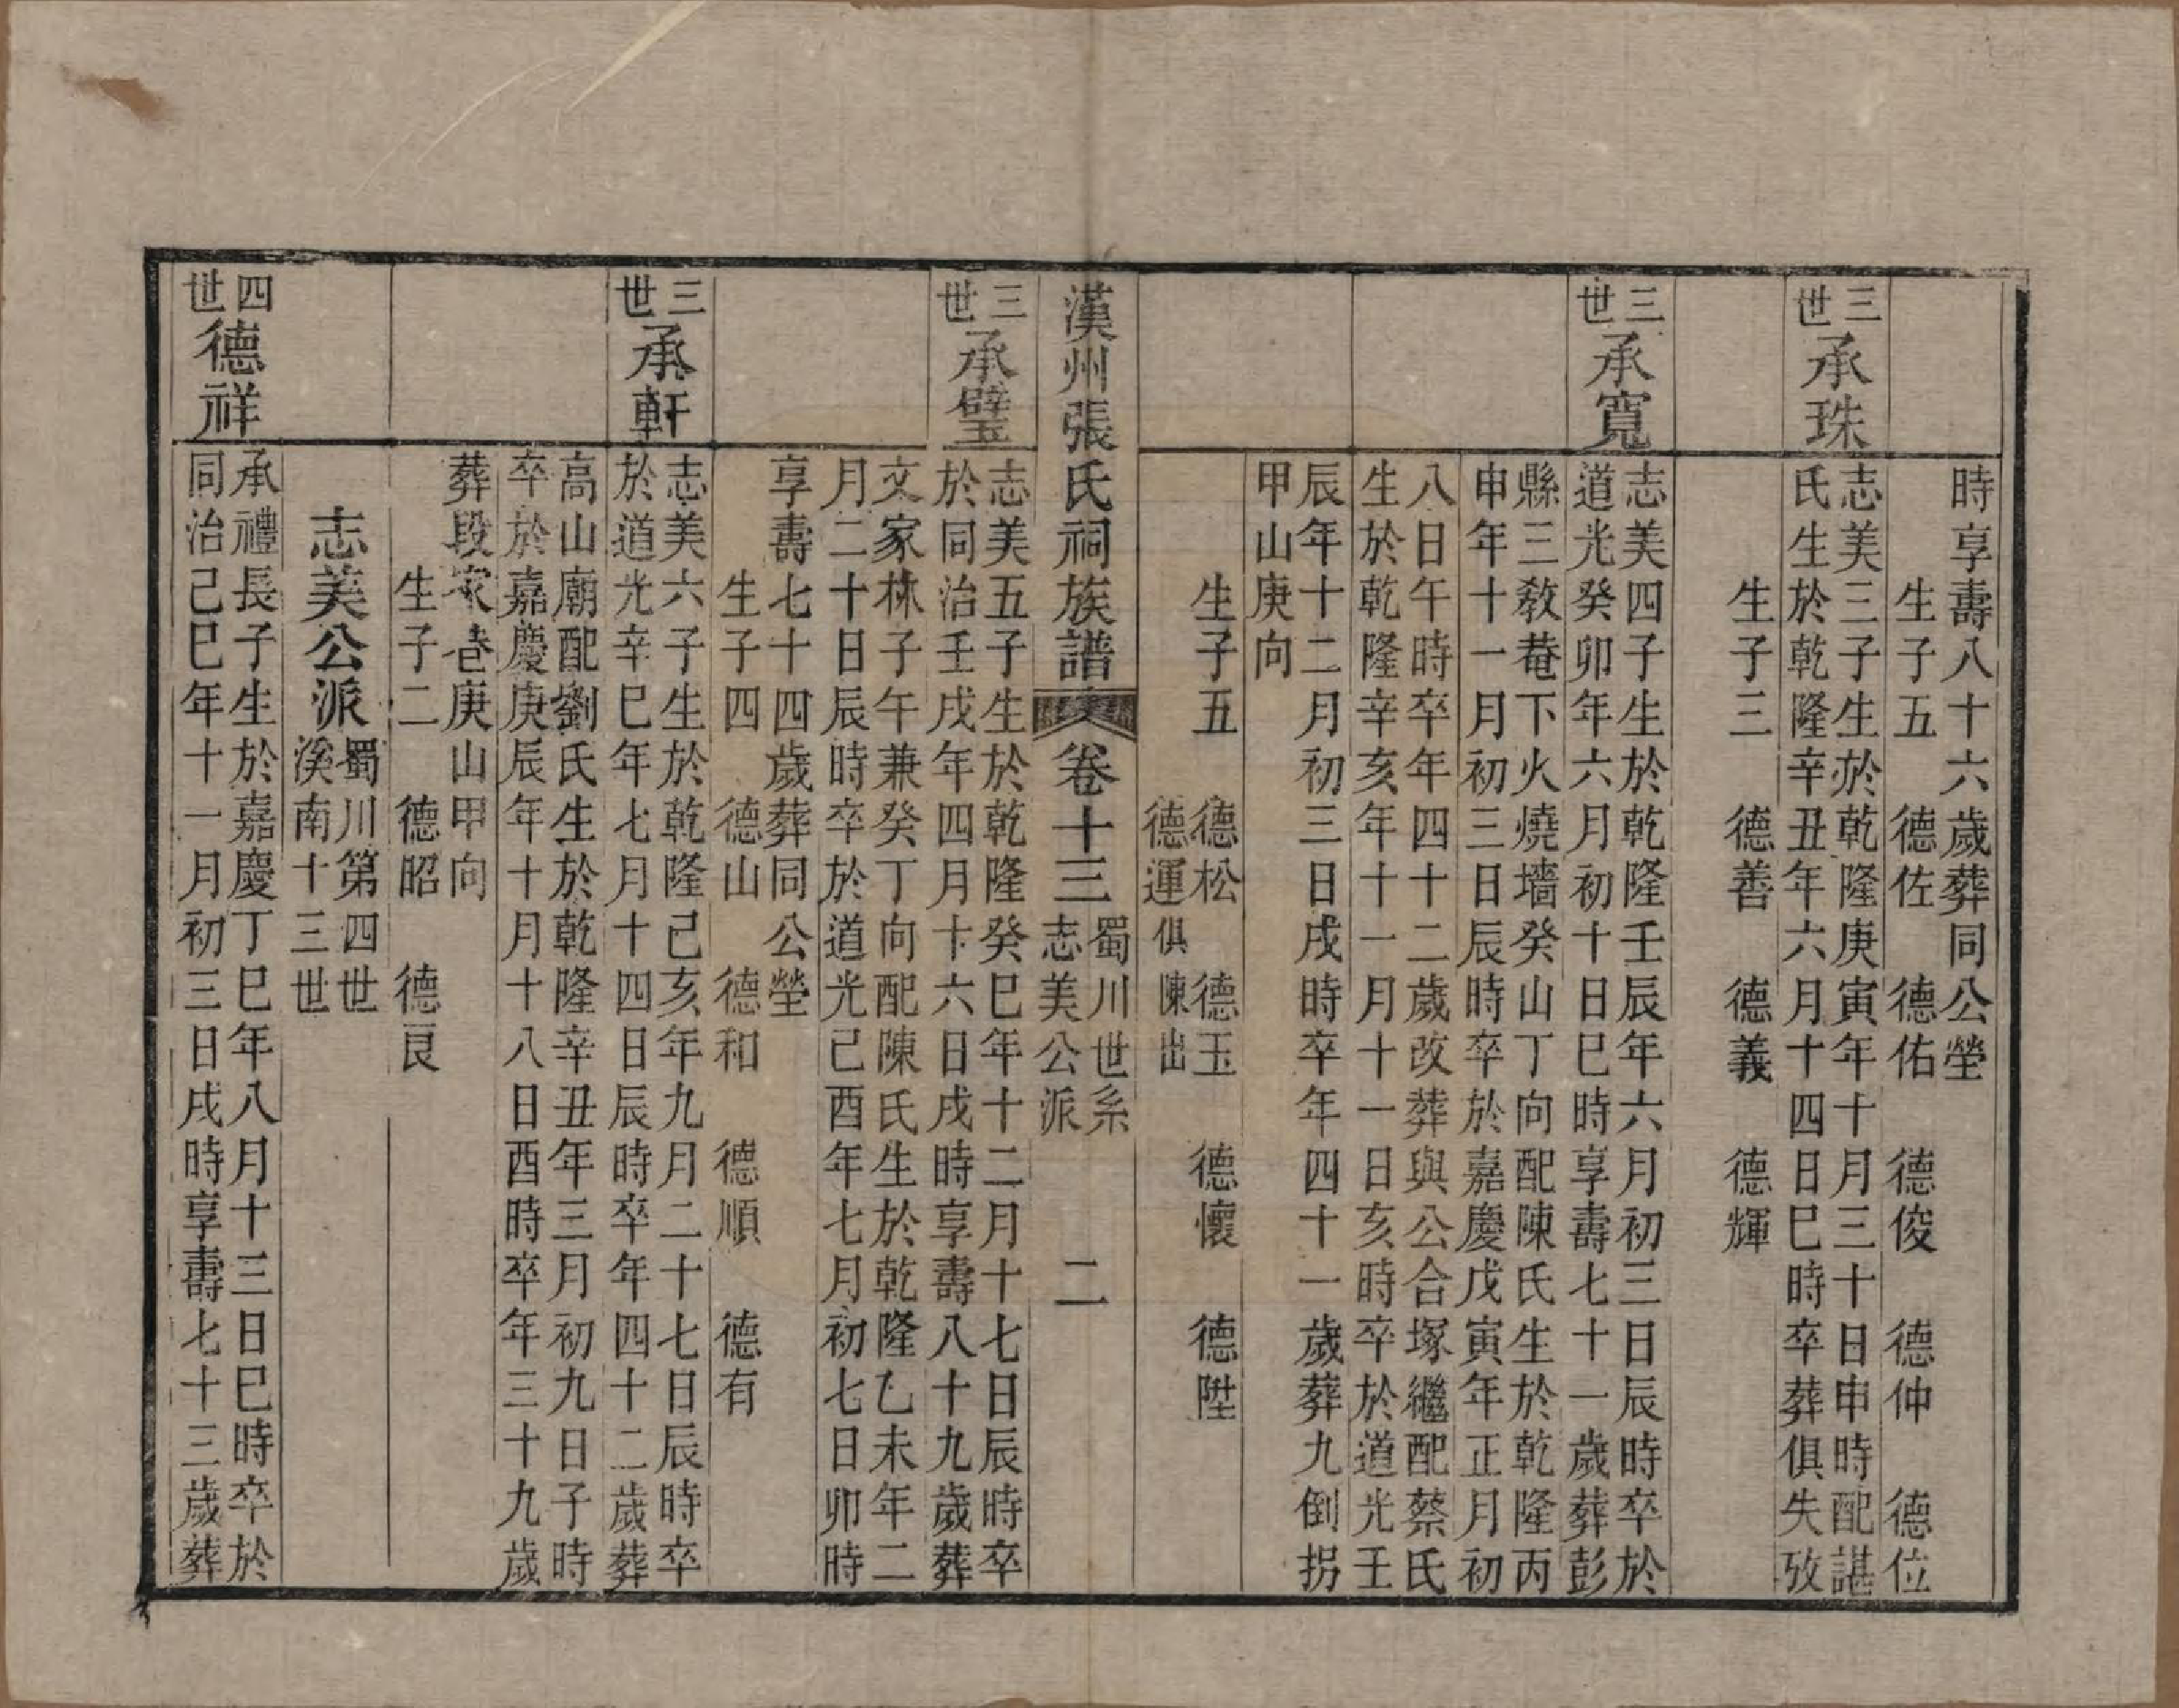 時享壽八十六歲葬同公塋
生子五　德佐　德佑　德俊　德仲　德位
三世　承珠
志美三子生於乾隆庚寅年十月三十日申時配諶
氏生於乾隆辛丑年六月十四日巳時卒葬俱失攷
生子三　德善　德義　德輝
三世　承寬
志美四子生於乾隆壬辰年六月初三日辰時卒於
道光癸卯年六月初十日巳時享壽七十一歲葬彭
縣三教菴下火燒墻癸山丁向配陳氏生於乾隆丙
申年十一月初三日辰時卒於嘉慶戊寅年正月初
八日午時卒年四十二歲改葬與公合塚繼配蔡氏
生於乾隆辛亥年十一月十一日亥時卒於道光壬
辰年十二月初三日戌時卒年四十一歲葬九倒拐
甲山庚向
生子五　德松　德玉　德懷　德陞
德運俱陳出
漢州張氏祠族譜　卷十三　蜀川世系　志美公派　二
三世　承璧
志美五子生於乾隆癸巳年十二月十七日辰時卒
於同治壬戌年四月十六日戌時享壽八十九歲葬
文家林子午兼癸丁向配陳氏生於乾隆乙未年二
月二十日辰時卒於道光己酉年七月初七日卯時
享壽七十四歲葬同公塋
生子四　德山　德和　德順　德有
三世　承軒
志美六子生於乾隆己亥年九月二十七日辰時卒
於道光辛巳年七月十四日辰時卒年四十二歲葬
高山廟配劉氏生於乾隆辛丑年三月初九日子時
卒於嘉慶庚辰年十月十八日酉時卒年三十九歲
葬段家巷庚山甲向
生子二　德昭　德良
志美公派　蜀川第四世
溪南十三世
四世　德祥
承禮長子生於嘉慶丁巳年八月十三日巳時卒於
同治己巳年十一月初三日戌時享壽七十三歲葬